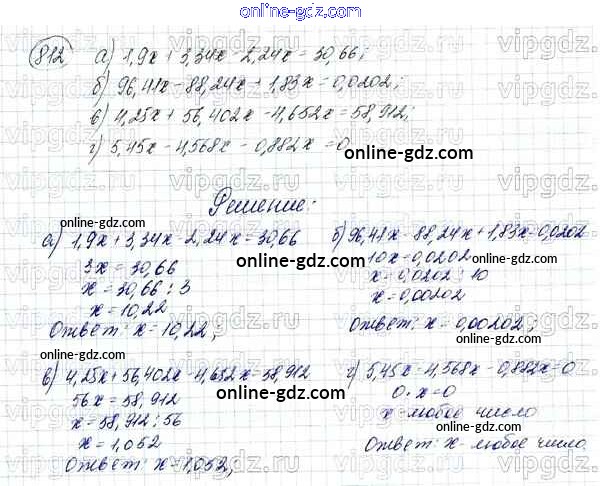 online-gdz.com
812 а) 1,9x + 3,34x - 2,24x = 30,66;
б) 96,41x - 88,24x + 1,83x = 0,0202;
в) 4,25x + 56,402x - 4,652x = 58,912;
г) 5,45x - 4,568x - 0,882x = 0
online-gdz.com
Решение:
online-gdz.com
online-gdz.com
а) 1,9x + 3,34x - 2,24x = 30,66
3x = 30,66
x = 30,66 : 3
x = 10,22
Ответ: x = 10,22;
б) 96,41x - 88,24x + 1,83x = 0,0202
10x = 0,0202
x = 0,0202 : 10
x = 0,00202
Ответ: x = 0,00202;
online-gdz.com
online-gdz.com
online-gdz.com
в) 4,25x + 56,402x - 4,652x = 58,912
56x = 58,912
x = 58,912 : 56
x = 1,052
Ответ: x = 1,052;
г) 5,45x - 4,568x - 0,882x = 0
0 · x = 0
x - любое число
Ответ: x - любое число.
online-gdz.com
online-gdz.com
vipgdz.ru